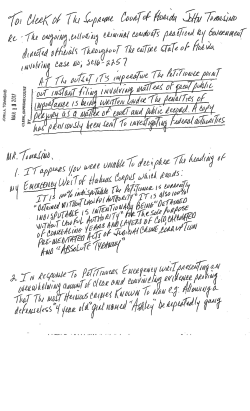 To: Clerk of The Supreme Court of Florida John Tomasino
Re - The ongoing, collusive criminal conduct practiced by Government
directed officials throughout the entire State of Florida
involving case no, SC18-2257
At the outset it's imperative the Petitioner point
out instant filing involving matters of great public
importance is being written under the penalties of
perjury as a matter of court and public record. A copy
has previously been sent to investigating federal authorities
Mr. Tomasino,
1. It appears you were unable to decipher the heading of
my Emergency Writ of Habeas Corpus which reads:
It is 100% indisputable the Petitioner is currently
"detained without lawful authority" It is also 100%
indisputable is intentionally being "detained
without lawful authority" for the sole purpose
of concealing years and layers of calculated
premeditated acts of judicial crime corruption
and "absolute tyranny"
2. In response to Petitioners Emergency writ presenting an
overwhelming amount of clear and convincing evidence proving
that the most heinous crimes known to man e.g. allowing a
defenseless "4 year old" girl named "Ashley" be repeatedly gang